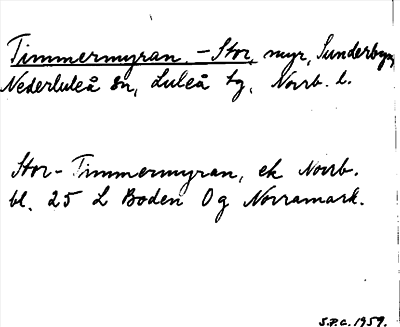 Timmermyran, -Stor, myr, Sunderbyn,
Nederluleå sn, Luleå tg, Norrb. l.
Stor-Timmermyran, ek Norrb.
bl. 25 L Boden Og Norramark.
S.P.C. 1959.